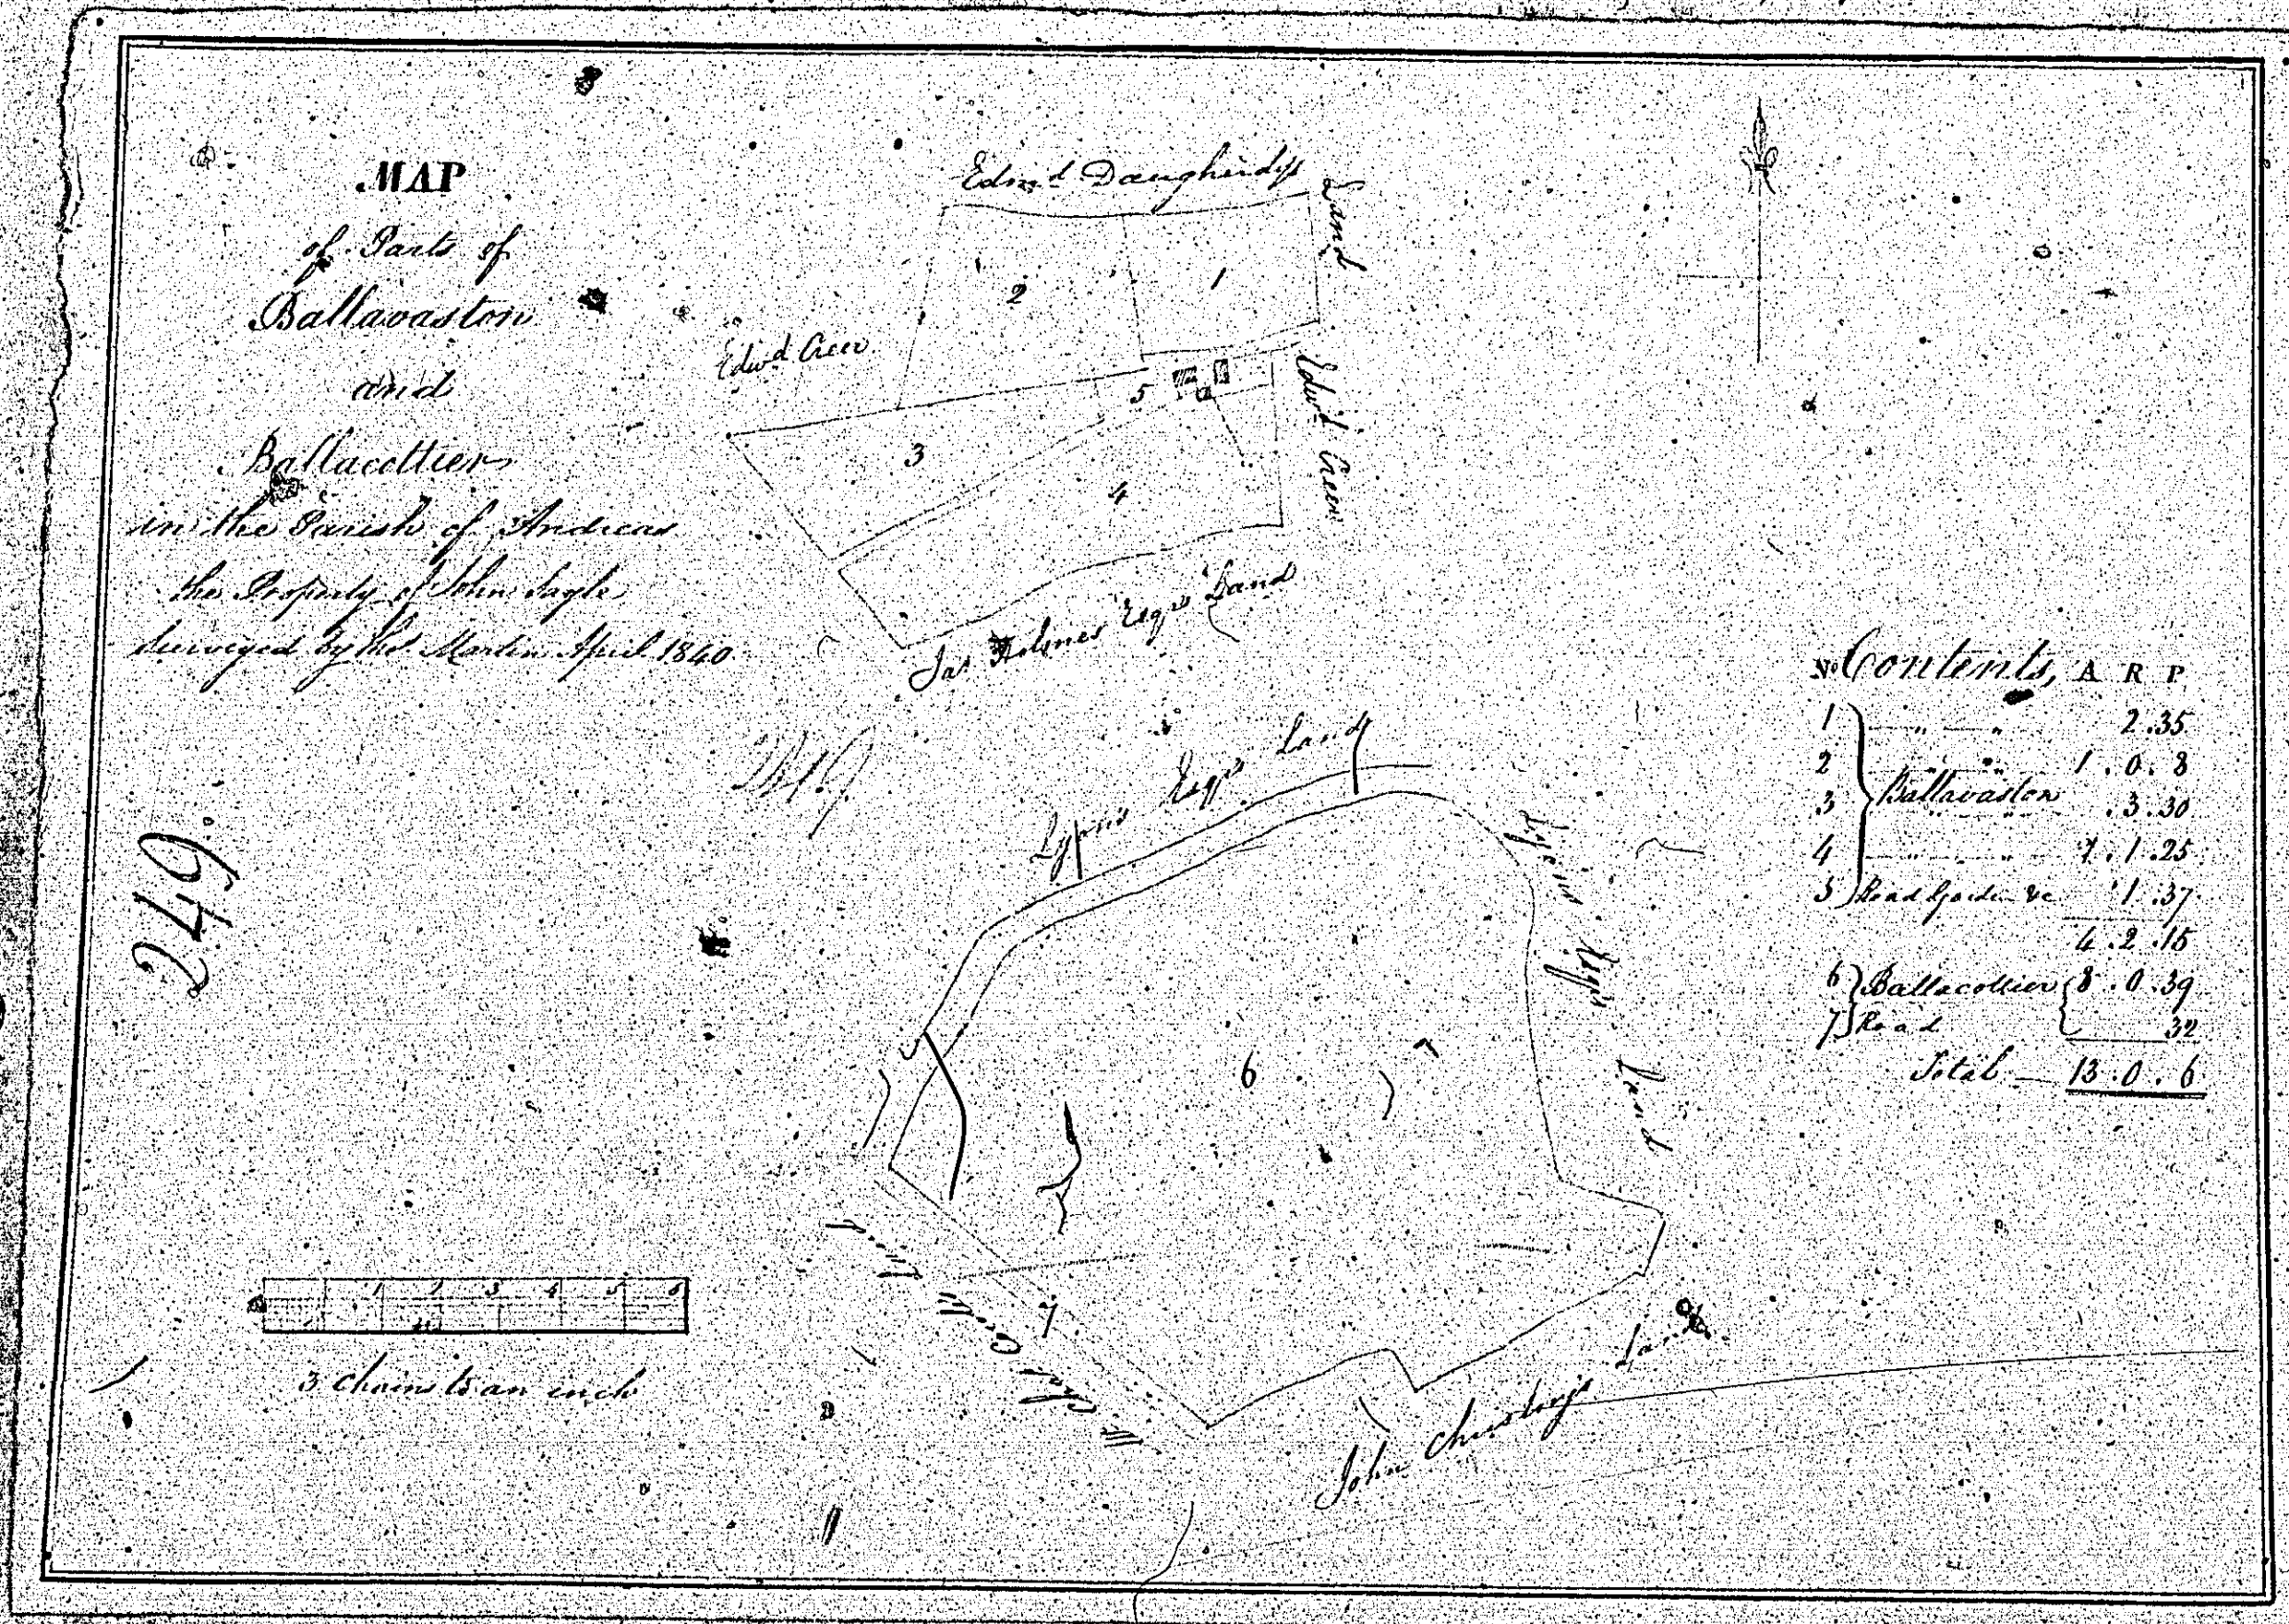 MAP
of Parts of
Ballavaston
and
Ballacottier
in the Parish of Andreas
the Property of John Sayle
Surveyed by Thos Martin April 1840
Edwd Daugherdys
Land
2
1
Edwd Creer
5
3
4
Edwd Creer
Jas Holmes Esqrs Land
249
Esqrs Land
Esqrs
Land
6
7
John Christory's Land
3 chains to an inch
1 2 3 4 5 6
No Contents, A R P
1 2.35
2 1.0.8
3 Ballavaston .3.30
4 1.1.25
5 Road Garden &c 1.37
4.2.15
6 Ballacottier 8.0.39
7 Road 32
Total 13.0.6